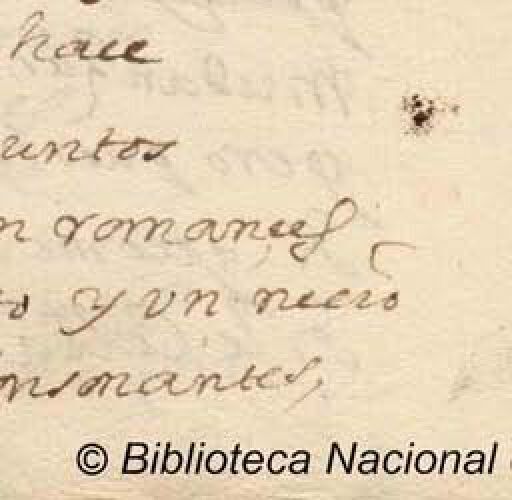 hace
untos
n romances
to y un necio
onsonantes,
© Biblioteca Nacional